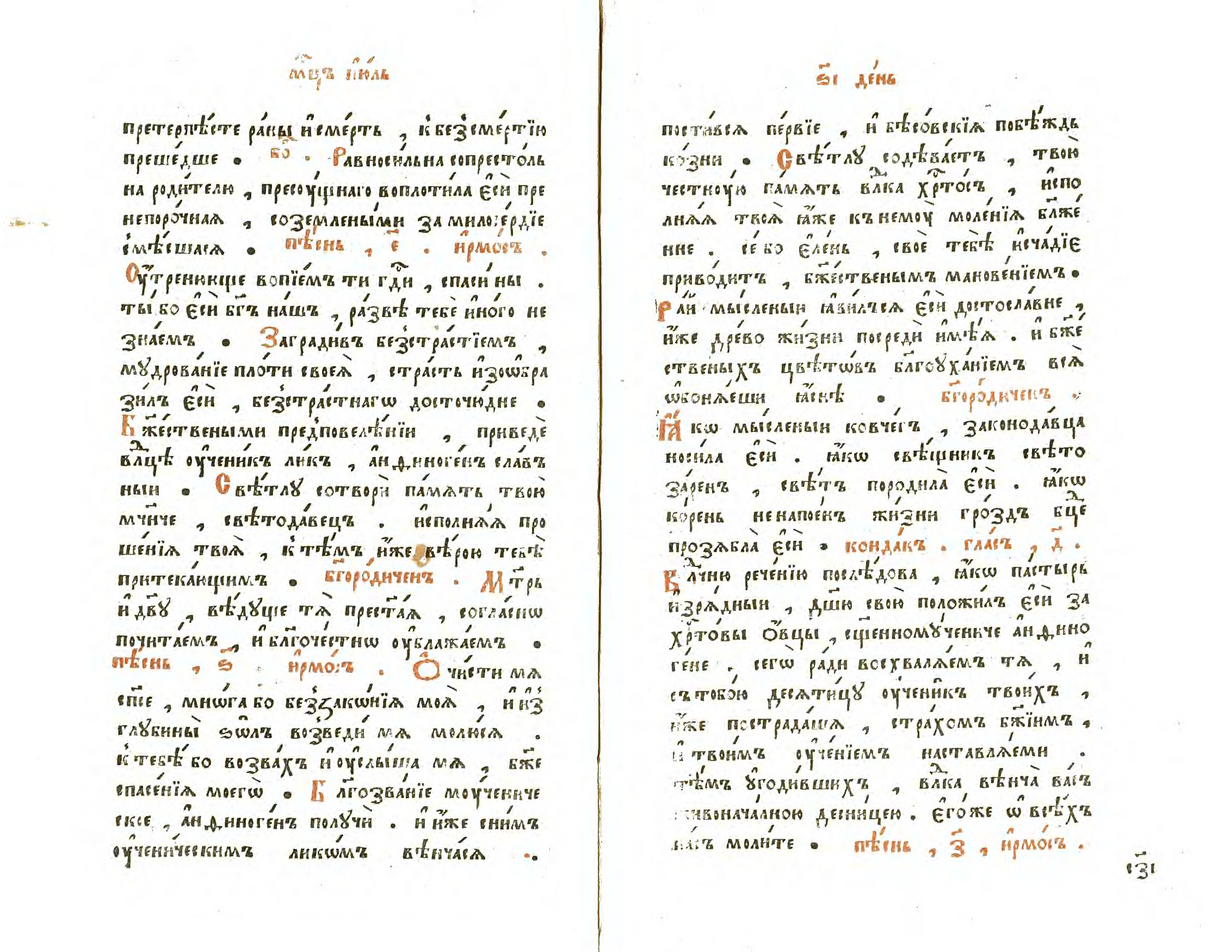 мⷭ҇цъ і҆ю́ль
претерпѣ́сте ра́ны и҆ сме́рть , к безсме́ртїю
преше́дше . бо҃ . Равноси́льна сопресто́ль
на роди́телю , пресꙋ́щнаго воплоти́ла є҆сѝ пре
непоро́чная , соземле́ными за милосе́рдїе
смѣ́сшася . пѣ́снь , є҃ . і҆рмо́съ .
Оу҆́тренюю́ще вопїе́мъ ти гдⷭ҇и , спаси́ ны .
ты́ бо є҆сѝ бг҃ъ на́шъ , ра́звѣ тебѐ и҆но́го не
зна́емъ . Загради́въ безстра́стїемъ ,
мꙋдрова́нїе пло́ти своея̀ , стра́сть и҆зѡбра
зи́лъ є҆сѝ , безстра́стнагѡ досточю́дне .
Бж҃е́ствеными предповелѣ́нїи , приведѐ
влⷣцѣ оу҆чени́къ ли́къ , а҆нѳиноге́нъ сла́въ
ныи . Свѣ́тлꙋ сотворѝ па́мять твою̀
мч҃нче , свѣтода́вецъ . и҆сполня́я про
ше́нїя твоя̀ , к тѣ́мъ и҆́же вѣ́рою тебѣ̀
притека́ющимъ . бг҃оро́диченъ . Мт҃рь
и҆ дв҃ꙋ , вѣ́дꙋще тя̀ престⷭ҇а́я , согла́снѡ
почита́емъ , и҆ бл҃гоче́стнѡ оу҆блажа́емъ .
пѣ́снь , ѕ҃ . і҆рмо́съ . Ѻ҆чи́сти мя
сп҃се , мнѡ́га бо беззакѡ́нїя моя̀ , и҆ и҆з̾
глꙋбины̀ ѕѡ́лъ возведи́ мя молю́ся .
к тебѣ́ бо возва́хъ и҆ оу҆слы́ша мя , бж҃е
спасе́нїя моегѡ̀ . Бл҃гозва́нїе моу́чениче
ское , а҆нѳиноге́нъ полꙋчѝ . и҆ и҆́же сни́мъ
оу҆чени́ческимъ ли́кѡмъ вѣнча́ся .
ѕ҃і де́нь
пости́вся пе́рвїе , и҆ бѣсо́вскїя побѣ́ждь
ко́зни . Свѣ́тлꙋ содѣ́ваетъ , твою̀
честноу́ю па́мять влⷣка хрⷭ҇то́съ , и҆спо
лня́я твоя̀ ꙗ҆́же къ немоу̀ моле́нїя бл҃же́
нне . се́ бо є҆ле́нь , своѐ тебѣ̀ и҆сча́дїе
приво́дитъ , бж҃е́ственымъ манове́нїемъ .
Ра́й мы́сленыи ꙗ҆ви́лъся є҆сѝ достосла́вне ,
и҆́же дре́во жи́зни посредѝ и҆мѣ́я . и҆ бж҃е́
ственыхъ цвѣтѡ́въ бл҃гоуха́нїемъ вся̀
ѡ҆боня́еши ꙗ҆́снѣ . бг҃оро́диченъ .
Ꙗ҆́кѡ мы́сленыи ковче́гъ , законода́вца
носи́ла є҆сѝ . ꙗ҆́кѡ свѣ́щникъ свѣто
за́ренъ , свѣ́тъ породи́ла є҆сѝ . ꙗ҆́кѡ
ко́рень ненапое́нъ жи́зни гро́здъ бцⷣе
прозя́бла є҆сѝ . конда́къ . гла́съ , д҃ .
Влⷣчню рече́нїю послѣ́дова , ꙗ҆́кѡ па́стырь
и҆зря́дныи , дш҃ю свою̀ положи́лъ є҆сѝ за
хрⷭ҇то́вы ѻ҆́вцы , сщ҃енномꙋ́чениче а҆нѳино
ге́не . сегѡ̀ ра́ди восхваля́емъ тя̀ , и҆
съ тобо́ю десяти́цꙋ оу҆чени́къ твои́хъ ,
и҆́же пострада́шя , стра́хомъ бж҃їимъ ,
и҆ твои́мъ оу҆че́нїемъ наставля́еми .
тѣ́мъ ᲂугоди́вшихъ , влⷣка вѣнча̀ ва́съ
живонача́лною десни́цею . є҆го́же ѡ҆ всѣ́хъ
на́съ моли́те . пѣ́снь , з҃ , і҆рмо́съ .
сз҃і